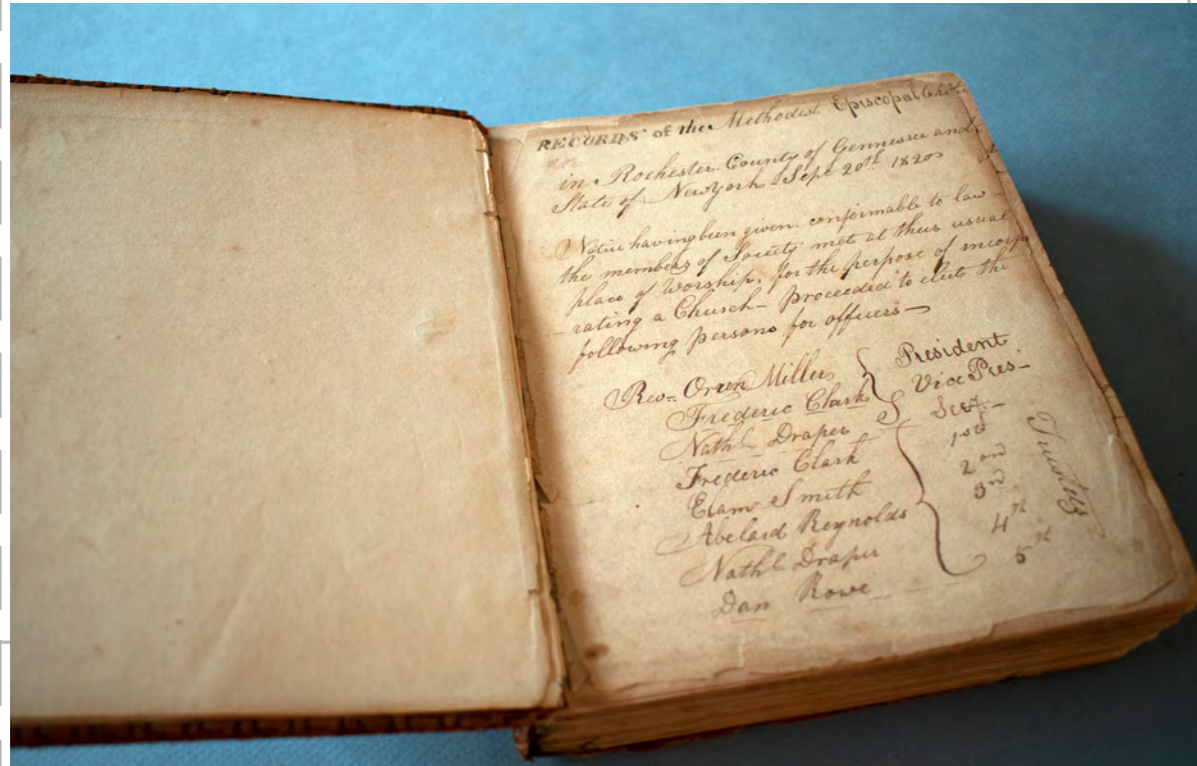 RECORDS of the Methodist Episcopal Chh
in Rochester County of Gennessee and
State of New york - Sept 20th 1820
Notice having been given conformable to law -
the members of Society met at their usual
place of worship, for the purpose of incorpo
-rating a Church - proceeded to elect the
following persons for officers -
Rev= Orren Miller } President
Frederic Clark Vice Pres -
Nathl Draper Secy. -
Frederic Clark 1st
Elam Smith 2nd
Abelard Reynolds 3rd
Nathl Draper 4th
Dan Rowe 5th
Trustees